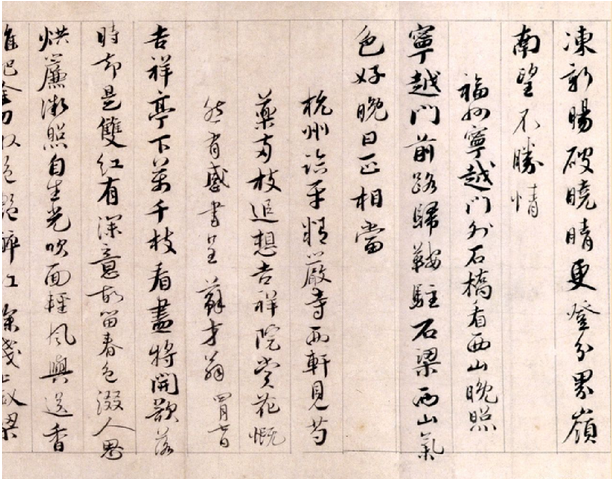 凍新暘破曉晴更登分界嶺
南望不勝情
福州寧越門外石橋看西山晚照
寧越門前路歸鞍駐石梁西山氣
色好晚日正相當
杭州臨平精嚴寺西軒見芍
藥兩枝追想吉祥院賞花慨
然有感書呈 蘇才翁 四月七日
吉祥亭下萬千枝看盡將開欲落
時却是雙紅有深意故留春色綴人思
烘簾微照自生光吹面輕風與送香
金刀醉紅梁